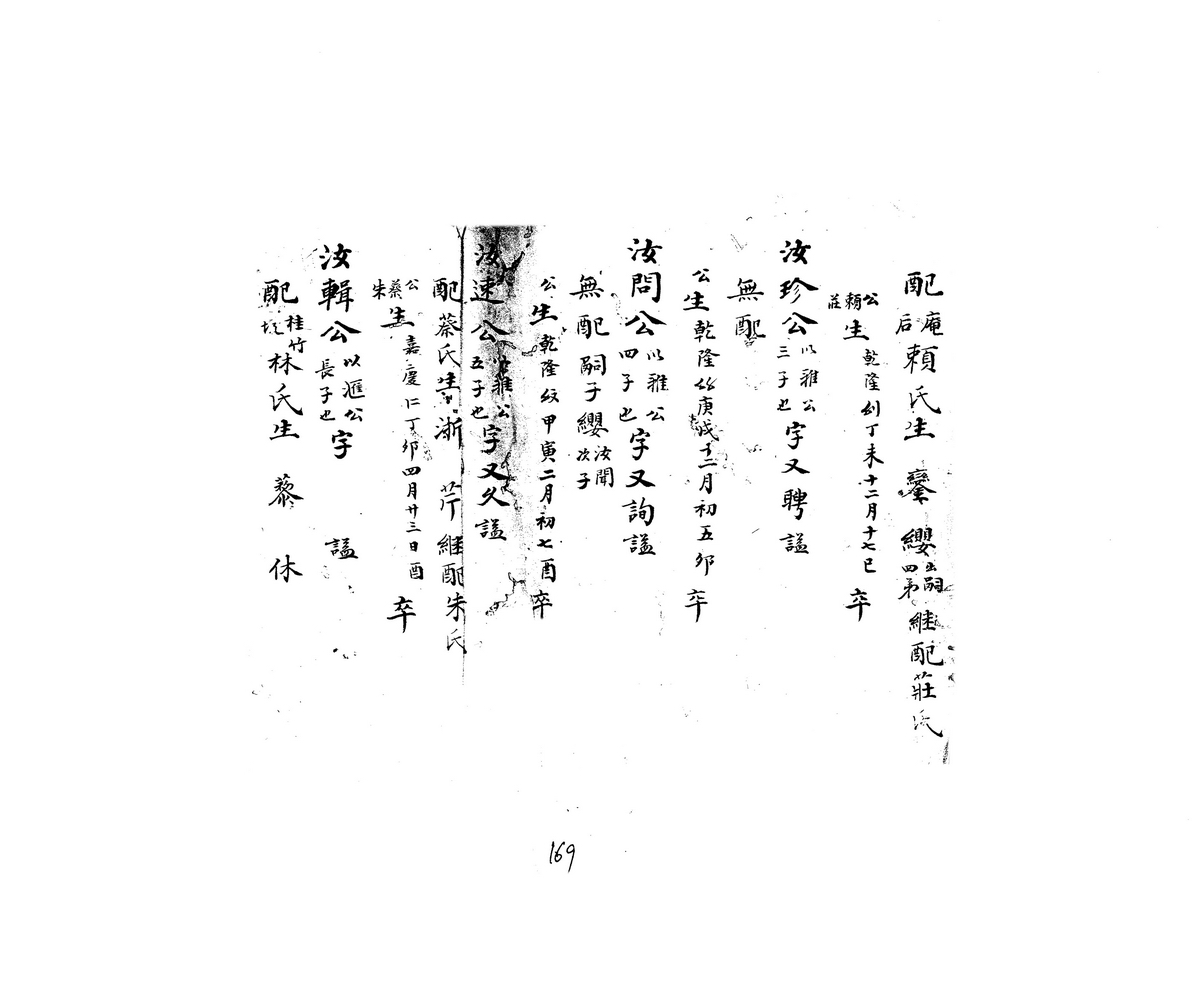 配庵后賴氏生鑾纓出嗣四弟繼配莊氏
公賴莊生乾隆丁未十二月十七巳卒
汝珍公以雅公三子也字又聘諡
無配
公生乾隆庚戌十二月初五卯卒
汝問公以雅公四子也字又詢諡
無配嗣子纓汝聞次子
公生乾隆甲寅二月初七酉卒
汝速公以雅公五子也字又久諡
配蔡氏生浙芹繼配朱氏
公蔡朱生嘉慶仁丁卯四月廿三日酉卒
汝輯公以滙公長子也字諡
配桂竹林氏生藜休
169